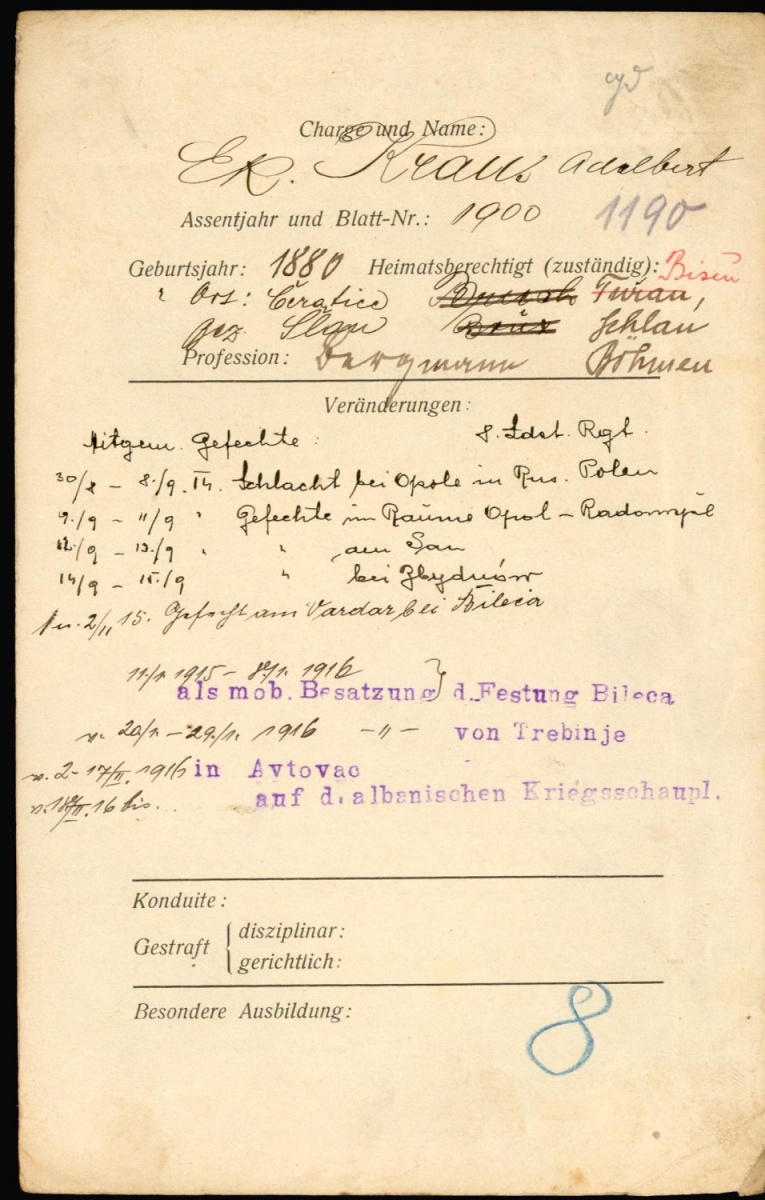 Charge und Name:
Kraus Adalbert
Assentjahr und Blatt-Nr.: 1900 1190
Geburtsjahr: 1880 Heimatsberechtigt (zuständig): Bisen
Ort: Ceratice Turan,
Bez. Slan Brüx Schlan
Profession: Bergmann Böhmen
Veränderungen:
Mitgem. Gefechte: 8. Ldst. Rgt.
30/8 – 8./9. 14. Schlacht bei Opole in Rus. Polen
9./9 – 11/9 " Gefechte im Raume Opol – Radomysl
12./9 – 13./9 " " am San
14/9 – 15./9 " bei Zbydniów
2/II 15. Gefecht am Vardar bei Bileca
11/1. 1915 – 8/1. 1916
als mob. Besatzung } d. Festung Bileca
v. 20/1. – 29./1. 1916 –"– von Trebinje
v. 2 – 17/II. 1916 in Avtovac
v. 18/II. 16 bis. auf d. albanischen Kriegsschaupl.
Konduite:
Gestraft { disziplinar:
gerichtlich:
Besondere Ausbildung:
8